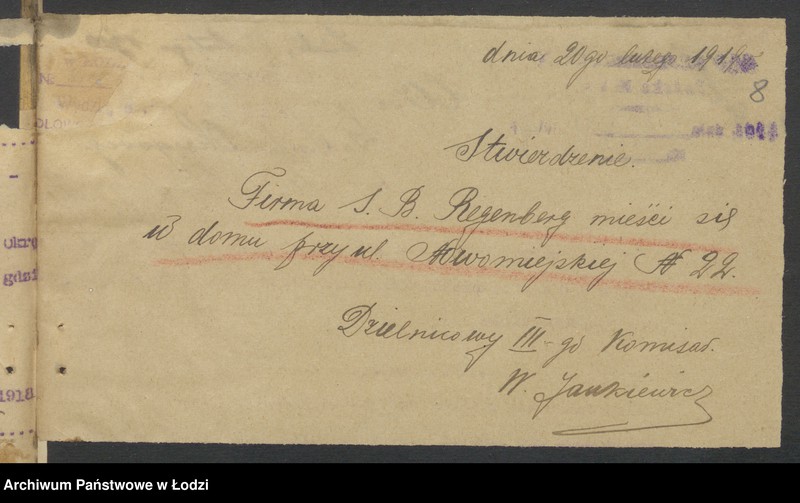 dnia 20go lutego 191
8
Stwierdzenie.
Firma S. B. Regenberg mieści się
w domu przy ul. Nowomiejskiej N 22.
Dzielnicowy III-go Komisar.
W. Jankiewicz
Okrę
gdzi
1918
Archiwum Państwowe w Łodzi